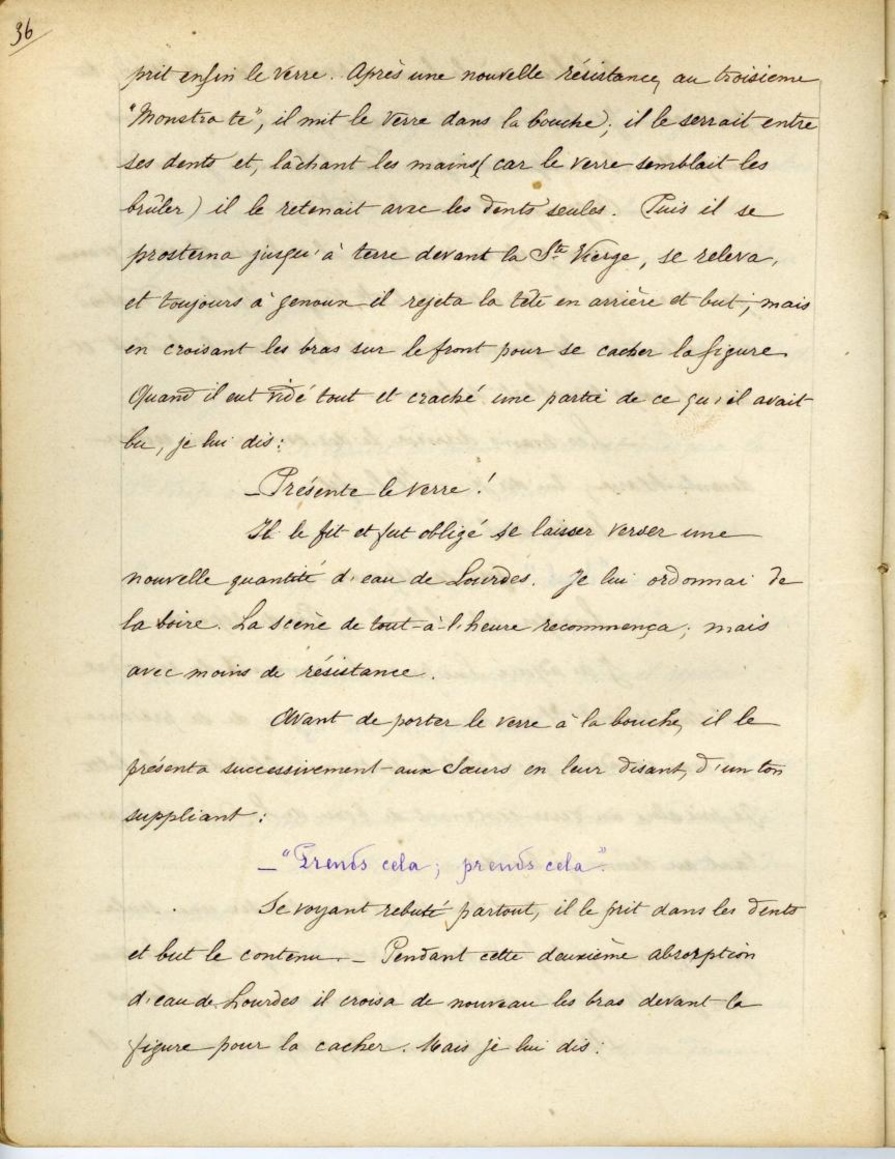 36
prit enfin le verre. Après une nouvelle résistance, au troisième
"Monstra te", il mit le verre dans la bouche; il le serrait entre
ses dents et, lâchant les mains (car le verre semblait les
brûler) il le retenait avec les dents seules. Puis il se
prosterna jusqu'à terre devant la Ste Vierge, se releva,
et toujours à genoux il rejeta la tête en arrière et but; mais
en croisant les bras sur le front pour se cacher la figure.
Quand il eut vidé tout et craché une partie de ce qu'il avait
bu, je lui dis:
_ Présente le verre!
Il le fit et fut obligé se laisser verser une
nouvelle quantité d'eau de Lourdes. Je lui ordonnai de
la boire. La scène de tout-à-l'heure recommença; mais
avec moins de résistance.
Avant de porter le verre à la bouche, il le
présenta successivement aux Sœurs en leur disant, d'un ton
suppliant:
_ "Prends cela; prends cela".
Se voyant rebuté partout, il le prit dans les dents
et but le contenu. _ Pendant cette deuxième absorption
d'eau de Lourdes il croisa de nouveau les bras devant la
figure pour la cacher. Mais je lui dis: